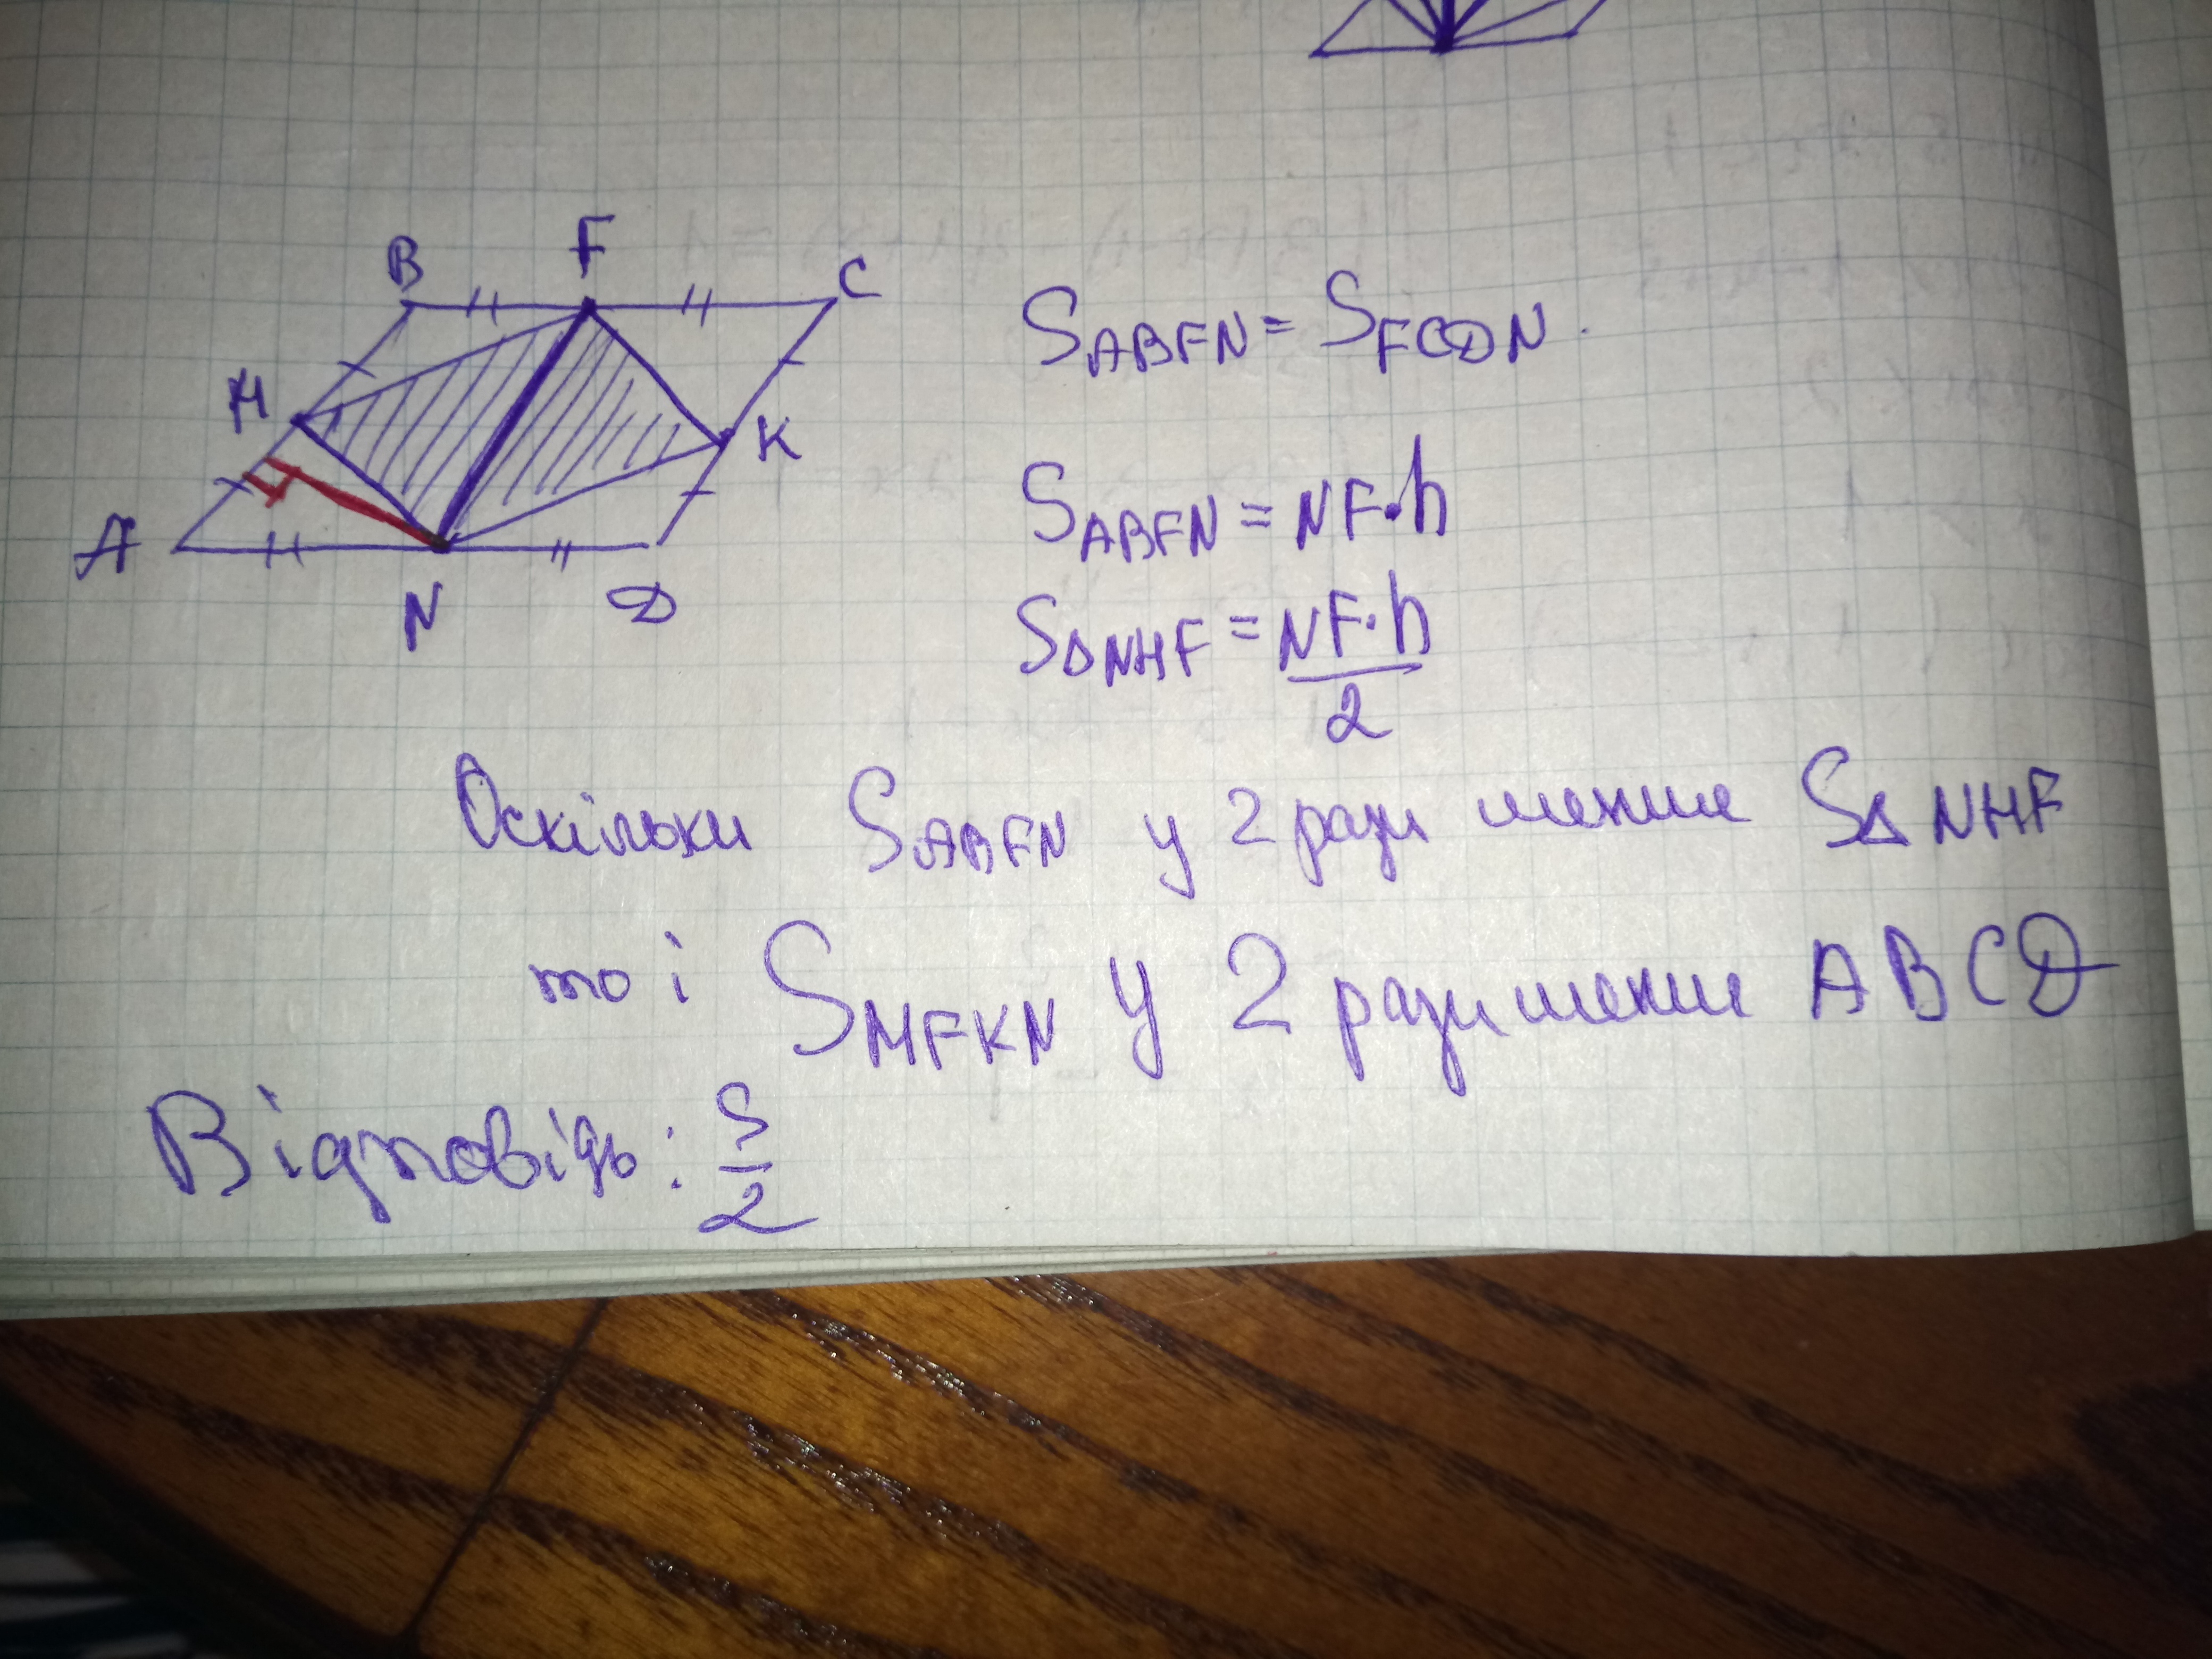 B F C
M K
A N D
S ABFN = S FCDN.
S ABFN = NF·h
S ΔNMF = NF·h / 2
Оскільки S ABFN у 2 рази менше S Δ NMF
то і S MFKN у 2 рази менше ABCD
Відповідь: S/2